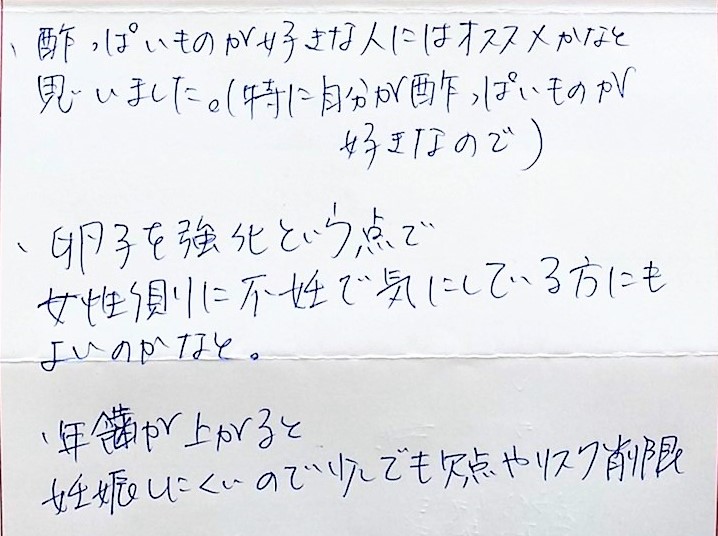 、酢っぱいものが好きな人にはオススメかなと
思いました。(特に自分が酢っぱいものが
好きなので)
、卵子を強化という点で
女性側に不妊で気にしている方にも
よいのかなと。
、年齢が上がると
妊娠しにくいので少しでも欠点やリスク削限